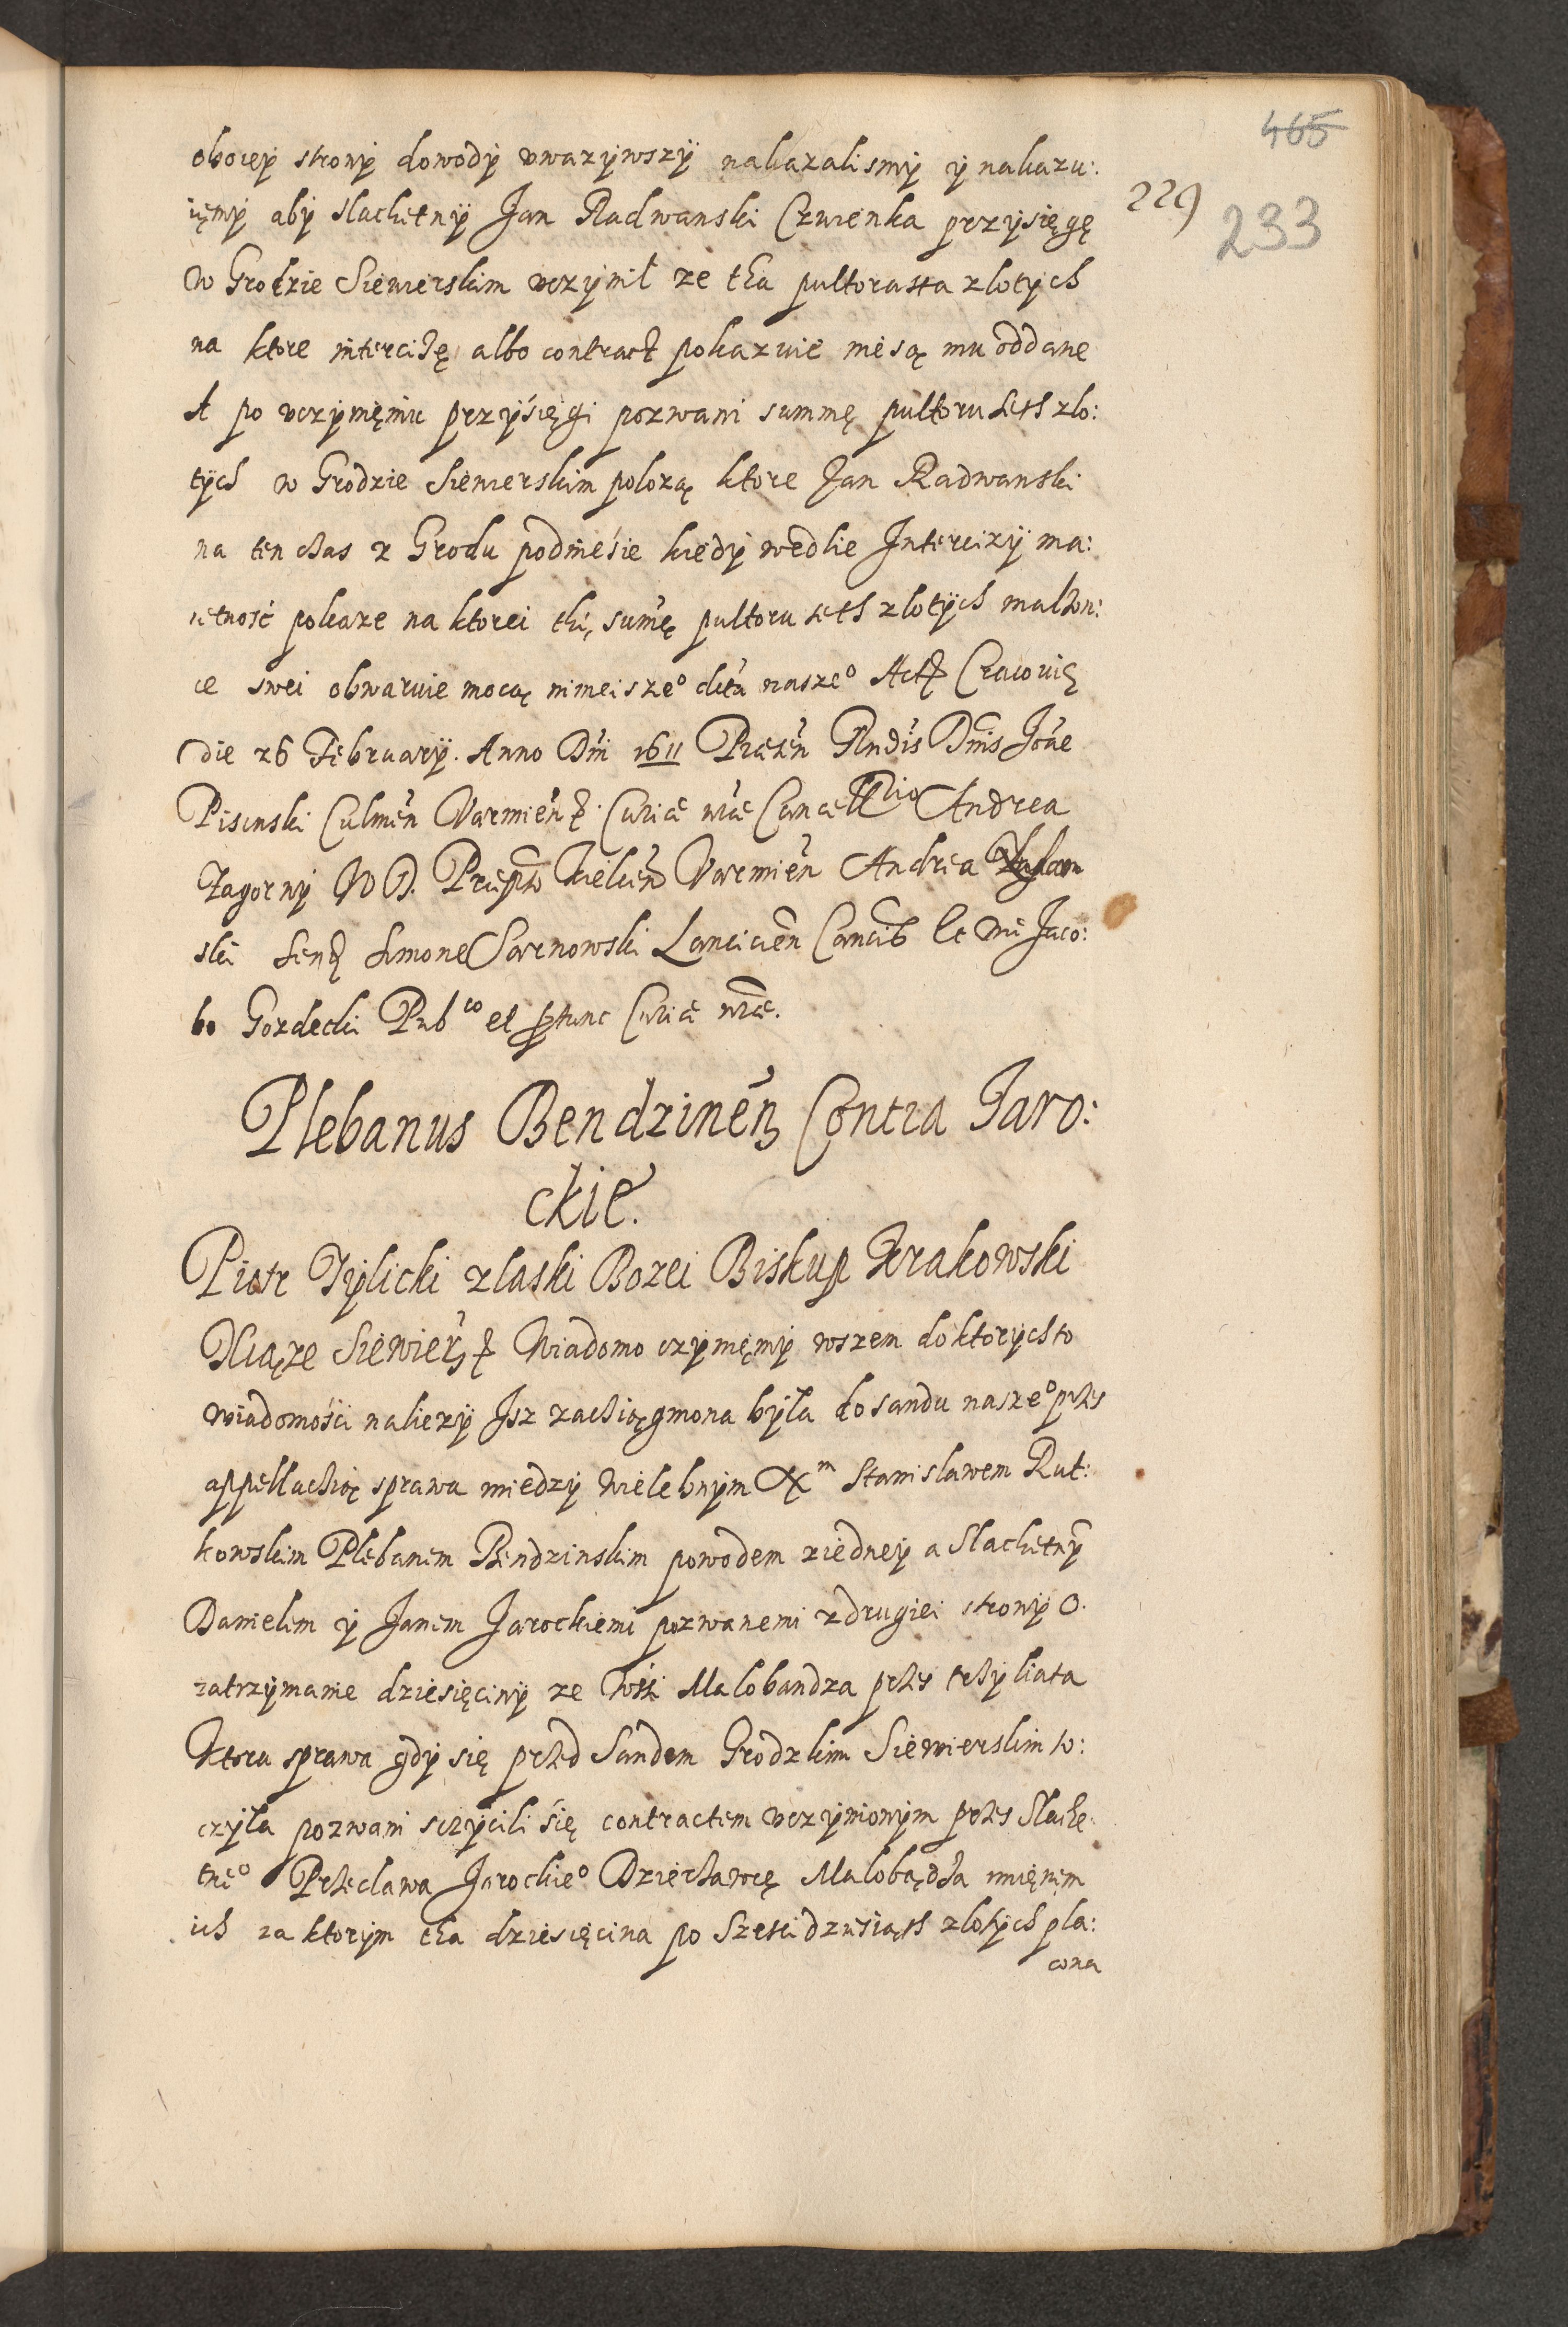 465
229
233
oboiey strony dowody vwazywszy nakazalismy y nakazu:
ięmy aby Slachetny Jan Radwanski Czwienka przysięgę
w Grodzie Siewierskim vczynił ze tha pultorasta zlotych
na ktore intercizę albo contract pokazuie niesą mu oddane
A po vczynięniu przysięgi pozwani summę pultoru seth zlo:
tych w Grodzie Siewierskim polozą ktore Jan Radwanski
na ten czas z Grodu podniesie kiedy wedlie Intercizy ma:
ietnosć pokaze na ktorei thę sumę pultoru seth zlotych malzon:
ce swei obwaruie mocą ninieiszeo dctu naszeo Act Cracovię
die 26 February. Anno Dni 1611 Presen Rndis Dnis Jone
Pisinski Culmen Varmien Curiæ nræ Cancellrio Andrea
Zagorny V D. Præpto Kielcen Varmien Andrea
ski Simone Sarnowski Lancicien Cancis et me Jaco:
bo Gozdecki Pubco et ptunc Curiæ nræ.
Plebanus Bendzinen Contra Jaro:
ckie.
Piotr Tylicki z laski Bozei Biskup Krakowski
Xiąze Siewier Wiadomo czynięmy wszem do ktorych to
wiadomości nalezy Isz zachiągniona była do sandu naszeo przes
appellachią sprawa miedzy wielebnym Xm Stanislawem Rut:
kowskim Plebanem Bendzinskim powodem z iedney a Slachetny
Danielem y Janem Jarockiemi pozwanemi z drugiei strony o
zatrzymanie dziesięciny ze wsi Malobandza przes trzy liata
Ktora sprawa gdy się przed Sandem Grodzkim Siewierskim to:
czyła pozwani sczycili się contractem vczynionym przes Slache
tneo Przeclawa Jarockieo Dzierzawcę Malobądza imięniem
ich za ktorym tha dziesięcina po Szescidziesiąth zlotych pla:
cona